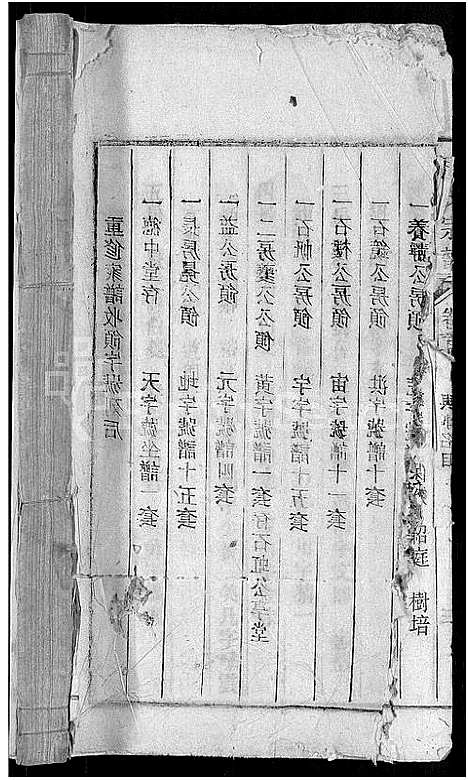 重修家譜收領字號列后
一德中堂存 天字號坐譜一套
一長房晃公領 地字號譜十五套
一益公房領 元字號譜四套
一二房襄公公領 黃字號譜一套存石虹公享堂
一石帆公房領 宇字號譜十五套
一石樓公房領 宙字號譜十一套
一石鏡公房領 洪字號譜十六套
一養 公房領 紹庭 樹培
宗譜 卷首